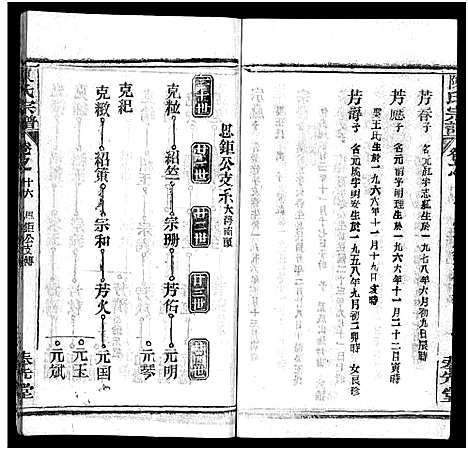 陳氏宗譜
芳春子 名元紅字志紅生於一九七八年六月初九日辰時
芳應子 名元南字明理生於一九六六年十一月二十二日寅時
娶王氏生於一九六六年十一月十九日亥時
芳壽子 名元成字明安生於一九五八年九月初二卯時 女良珍
恩鉅公支系大溽南頭
二十世 廿一世 廿二世 廿三世 廿四世
克粒 紹竺 宗珊 芳佑 元明
元琴
克敏 紹策 宗和 芳火 元国
克紀
元玉
元斌
陳氏宗譜
恩鉅公支傳
奉先堂